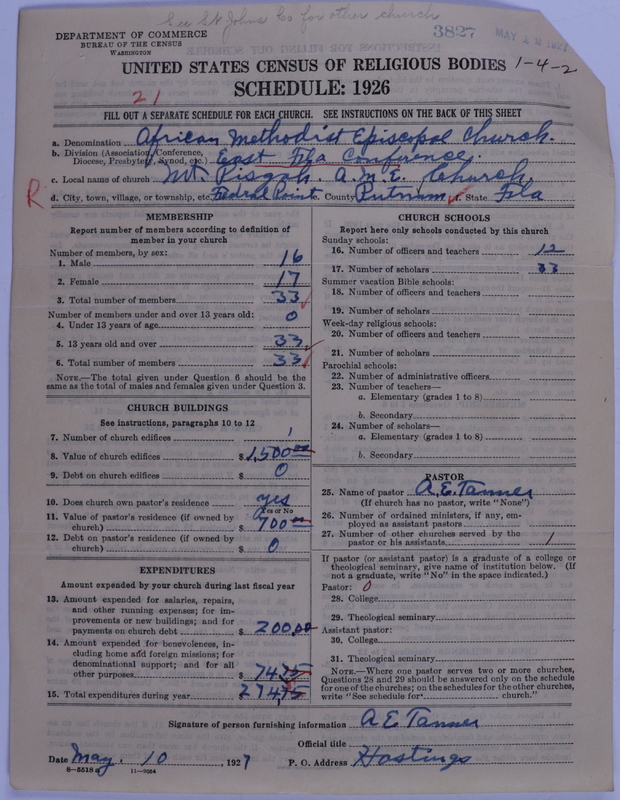 See St Johns Co for other church
DEPARTMENT OF COMMERCE
BUREAU OF THE CENSUS
WASHINGTON
3827
MAY 12 1927
UNITED STATES CENSUS OF RELIGIOUS BODIES 1-4-2
SCHEDULE: 1926
21
FILL OUT A SEPARATE SCHEDULE FOR EACH CHURCH. SEE INSTRUCTIONS ON THE BACK OF THIS SHEET
a. Denomination African Methodist Episcopal Church.
b. Division (Association, Conference, Diocese, Presbytery, Synod, etc.) East Fla Conference.
c. Local name of church Mt. Pisgah. A.M.E. Church.
R d. City, town, village, or township, etc. Federal Point e. County Putnam f. State Fla
MEMBERSHIP
Report number of members according to definition of
member in your church
Number of members, by sex:
1. Male 16
2. Female 17
3. Total number of members 33
Number of members under and over 13 years old:
4. Under 13 years of age 0
5. 13 years old and over 33
6. Total number of members 33
NOTE.—The total given under Question 6 should be the
same as the total of males and females given under Question 3.
CHURCH BUILDINGS
See instructions, paragraphs 10 to 12
7. Number of church edifices 1
8. Value of church edifices $1,500.00
9. Debt on church edifices $ 0
10. Does church own pastor's residence yes
Yes or No
11. Value of pastor's residence (if owned by
church) $ 700.00
12. Debt on pastor's residence (if owned by
church) $ 0
EXPENDITURES
Amount expended by your church during last fiscal year
13. Amount expended for salaries, repairs,
and other running expenses; for im-
provements or new buildings; and for
payments on church debt $ 200.00
14. Amount expended for benevolences, in-
cluding home and foreign missions; for
denominational support; and for all
other purposes $ 74.75
15. Total expenditures during year $ 274.75
CHURCH SCHOOLS
Report here only schools conducted by this church
Sunday schools:
16. Number of officers and teachers 12
17. Number of scholars 33
Summer vacation Bible schools:
18. Number of officers and teachers
19. Number of scholars
Week-day religious schools:
20. Number of officers and teachers
21. Number of scholars
Parochial schools:
22. Number of administrative officers
23. Number of teachers—
a. Elementary (grades 1 to 8)
b. Secondary
24. Number of scholars—
a. Elementary (grades 1 to 8)
b. Secondary
PASTOR
25. Name of pastor A.E. Tanner
(If church has no pastor, write "None")
26. Number of ordained ministers, if any, em-
ployed as assistant pastors
27. Number of other churches served by the
pastor or his assistants 1
If pastor (or assistant pastor) is a graduate of a college or
theological seminary, give name of institution below. (If
not a graduate, write "No" in the space indicated.)
Pastor: 0
28. College
29. Theological seminary
Assistant pastor:
30. College
31. Theological seminary
NOTE.—Where one pastor serves two or more churches,
Questions 28 and 29 should be answered only on the schedule
for one of the churches; on the schedules for the other churches,
write "See schedule for church."
Signature of person furnishing information A E Tanner
Official title
Date May. 10, 1927 P. O. Address Hastings
8-5518a 11-9064